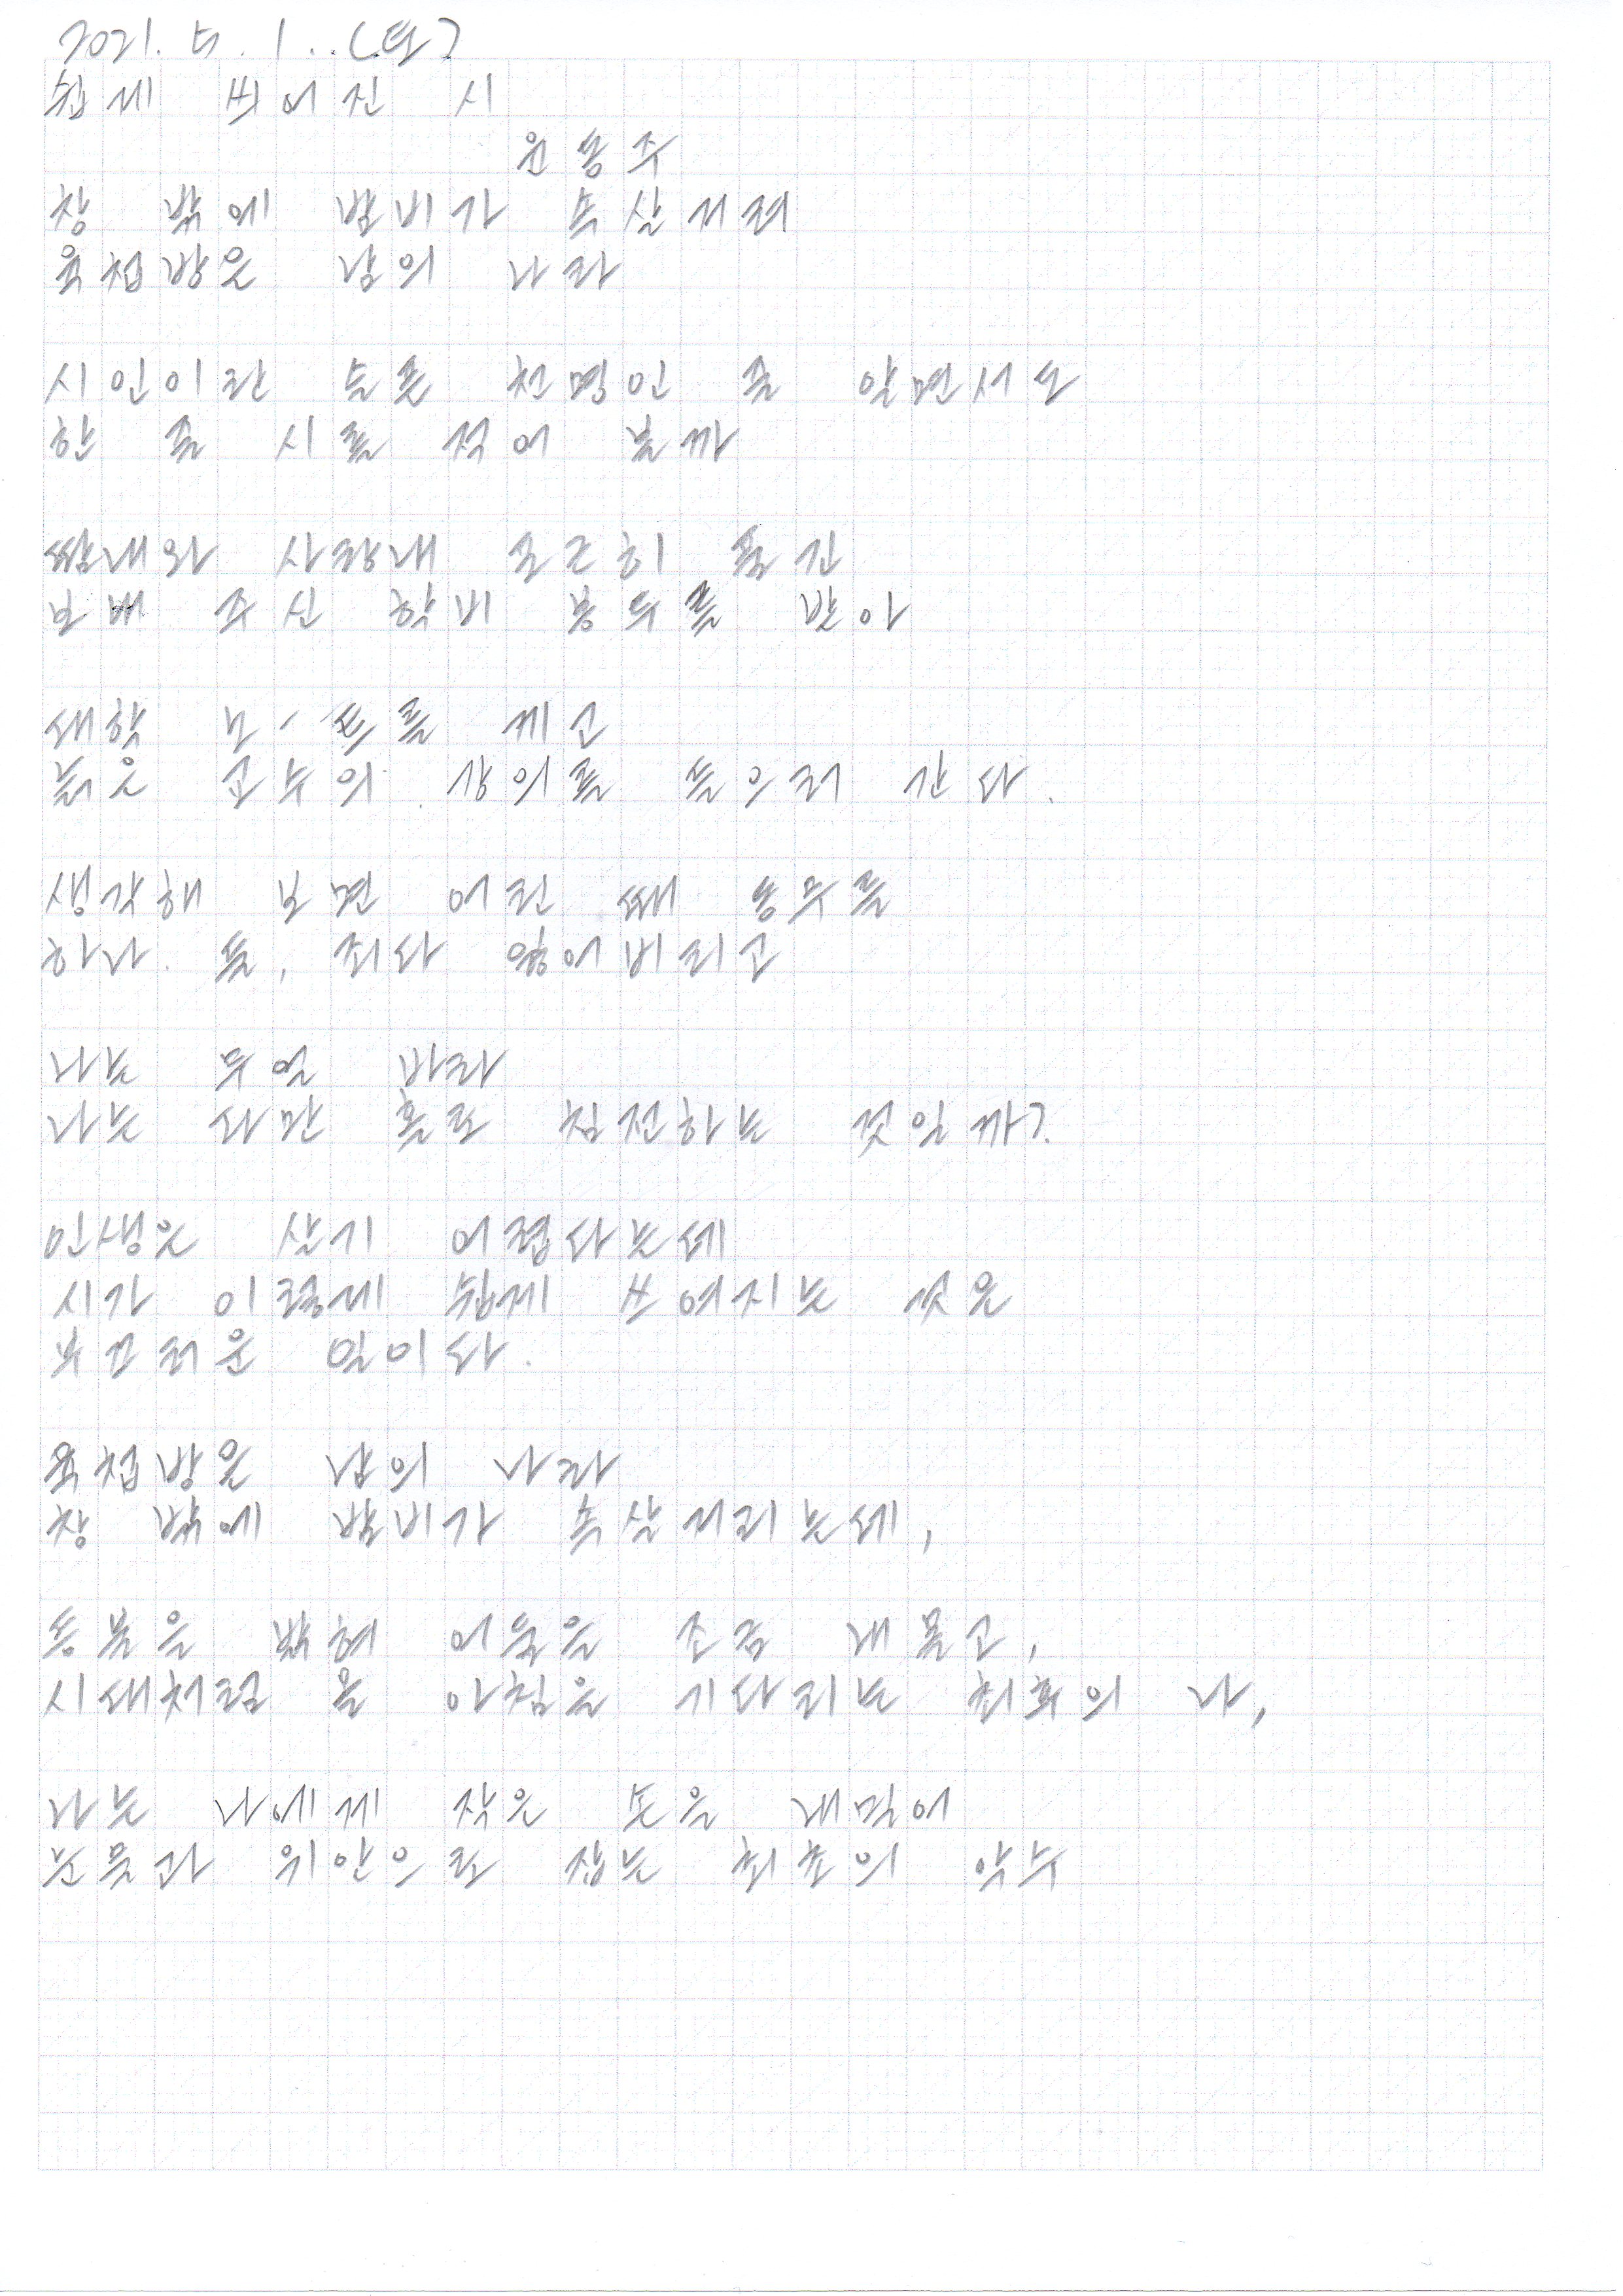 2021. 5. 1..(토)
쉽게 씌어진 시
윤동주
창 밖에 밤비가 속살거려
육첩방은 남의 나라
시인이란 슬픈 천명인 줄 알면서도
한 줄 시를 적어 볼까
땀내와 사랑내 포근히 품긴
보내 주신 학비 봉투를 받아
대학 노-트를 끼고
늙은 교수의 강의를 들으러 간다.
생각해 보면 어린 때 동무를
하나. 둘, 죄다 잃어버리고
나는 무얼 바라
나는 다만 홀로 침전하는 것일까?
인생은 살기 어렵다는데
시가 이렇게 쉽게 쓰여지는 것은
부끄러운 일이다.
육첩방은 남의 나라
창 밖에 밤비가 속살거리는데,
등불을 밝혀 어둠을 조금 내몰고,
시대처럼 올 아침을 기다리는 최후의 나,
나는 나에게 작은 손을 내밀어
눈물과 위안으로 잡는 최초의 악수